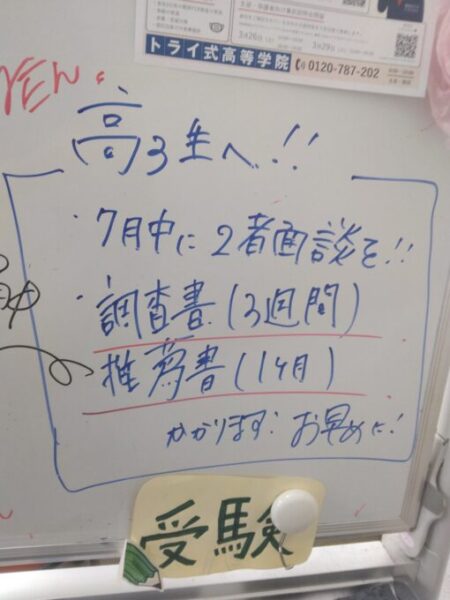 3月26日
3月29日
トライ式高等学院
0120-787-202
高3生へ!!
・7月中に2者面談を!!
・調査書(3週間)
推薦書(1ヶ月)
かかります! お早めに!
受験